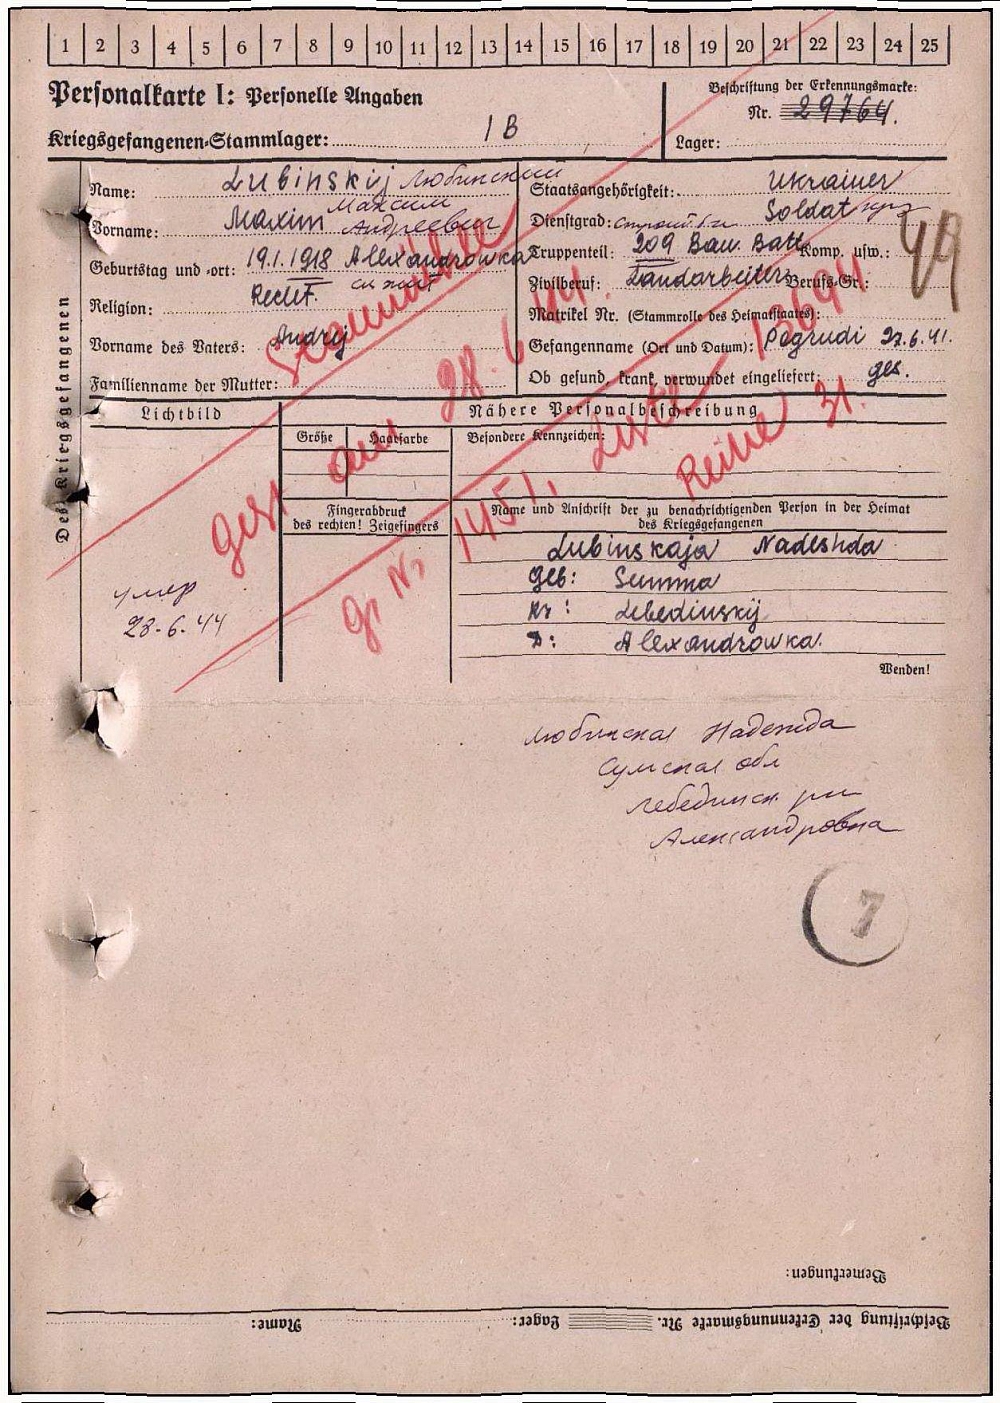 1 2 3 4 5 6 7 8 9 10 11 12 13 14 15 16 17 18 19 20 21 22 23 24 25
Personalkarte I: Personelle Angaben
Kriegsgefangenen-Stammlager: I B
Beschriftung der Erkennungsmarke:
Nr. 29764.
Lager:
Des Kriegsgefangenen
Name: Lubinskij Любинский
Vorname: Maxim Максим Андреевич
Geburtstag und -ort: 19.1.1918 Alexandrowka
Religion:
Vorname des Vaters: Andrej
Familienname der Mutter:
Staatsangehörigkeit: Ukrainer
Dienstgrad: Soldat
Truppenteil: 209 Bau. Batt Komp. usw.:
Zivilberuf: Landarbeiter Berufs-Gr.:
Matrikel Nr. (Stammrolle des Heimatstaates):
Gefangennahme (Ort und Datum): Pogrudi 27.6.41.
Ob gesund, krank, verwundet eingeliefert: ges.
49
Lichtbild
Nähere Personalbeschreibung
Größe
Haarfarbe
Besondere Kennzeichen:
Fingerabdruck
des rechten! Zeigefingers
Name und Anschrift der zu benachrichtigenden Person in der Heimat
des Kriegsgefangenen
Lubinskaja Nadeshda
Geb: Summa
Kr: Lebedinskij
D: Alexandrowka.
Wenden!
gest am 28. 6. 44.
Gr. Nr 1451, Liste 12694
Reihe 31.
умер
28-6.44
Любинская Надежда
Сумская обл
Лебединск. рн
Александровка
7
Bemerkungen:
Beschriftung der Erkennungsmarke Nr. Lager: Name: